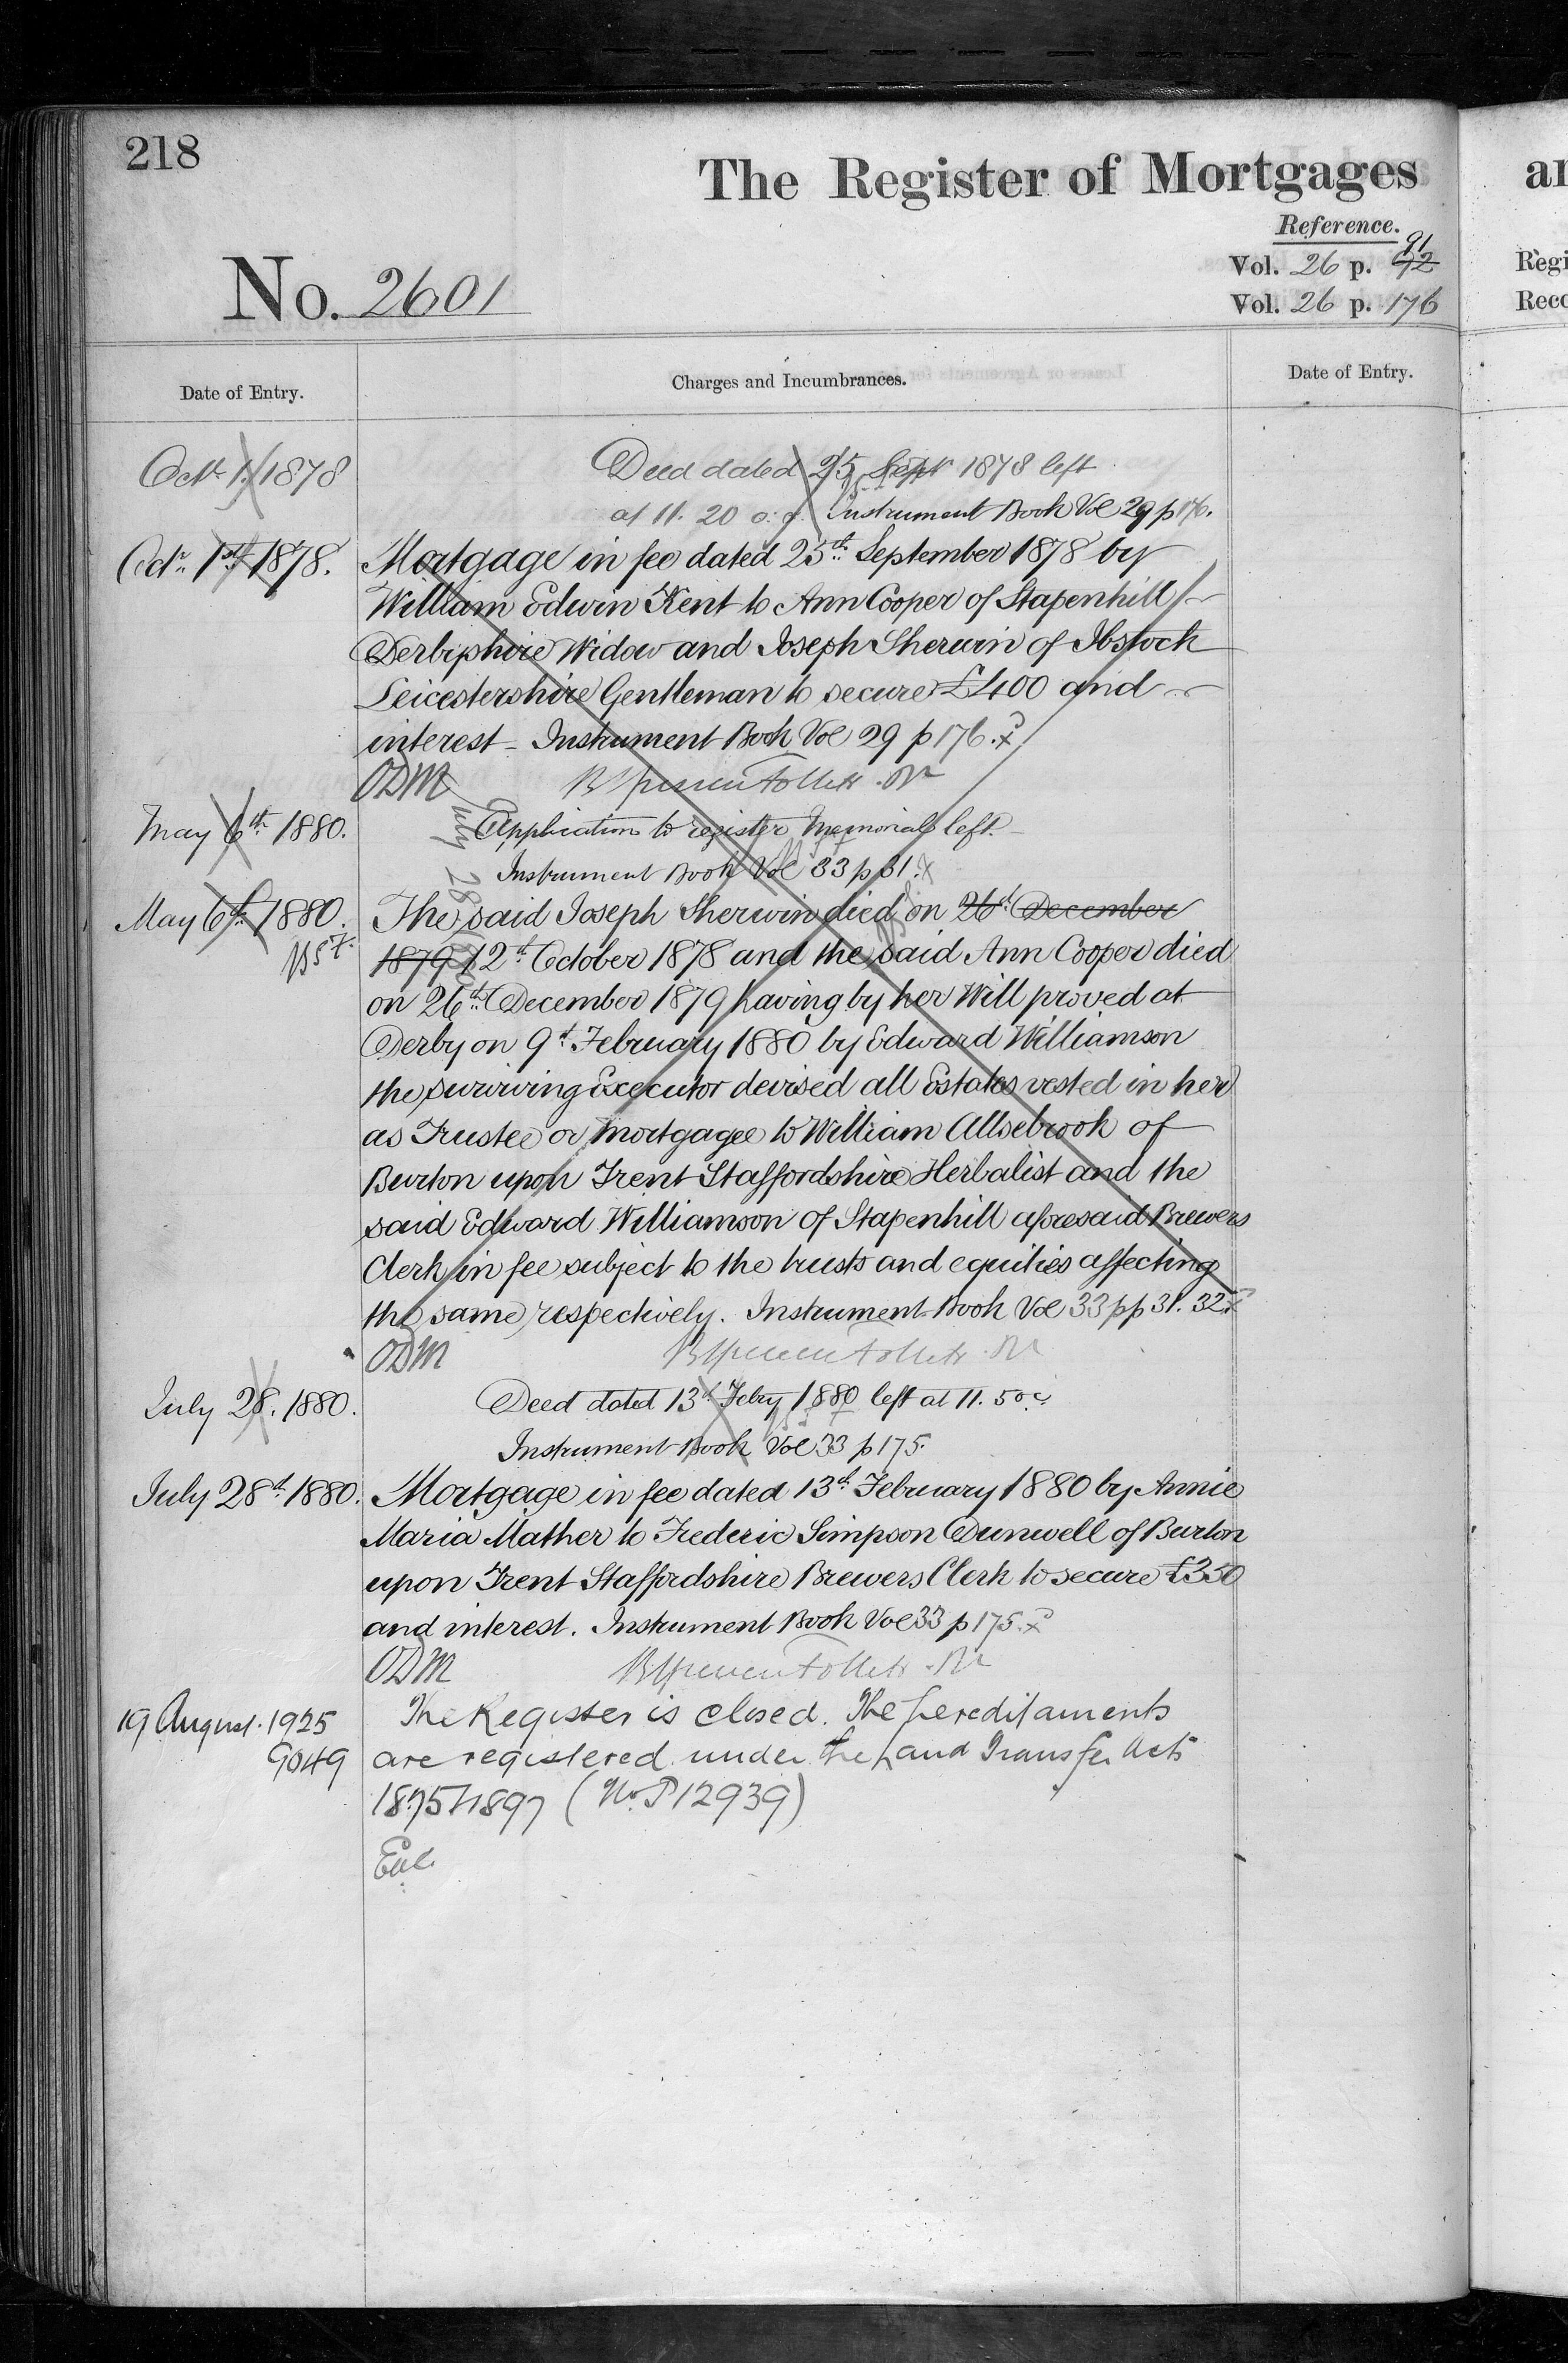 218
The Register of Mortgages
Reference.
No. 2601
Vol. 26 p. 42 91
Vol. 26 p. 176
Date of Entry.
Charges and Incumbrances.
Date of Entry.
Octr 1. 1878
Deed dated 25 Sept 1878 left
at 11. 20 Instrument Book Vol 29 p 176.
Octr. 1st 1878.
Mortgage in fee dated 25th September 1878 by
William Edwin Kent to Ann Cooper of Stapenhill
Derbyshire Widow and Joseph Sherwin of Ibstock
Leicestershire Gentleman to secure £400 and
interest - Instrument Book Vol 29 p 176.
ODM
May 6th 1880.
Application to register Memorial left
Instrument Book Vol 33 p 31.
July 28
May 6th 1880.
The said Joseph Sherwin died on 26th December
1879 12th October 1878 and the said Ann Cooper died
on 26th December 1879 having by her Will proved at
Derby on 9th February 1880 by Edward Williamson
the surviving Executor devised all Estates vested in her
as Trustee or Mortgagee to William Allsebrook of
Burton upon Trent Staffordshire Herbalist and the
said Edward Williamson of Stapenhill aforesaid Brewers
Clerk in fee subject to the trusts and equities affecting
the same respectively. Instrument Book Vol 33 pp 31. 32.
ODM
July 28. 1880.
Deed dated 13th Feby 1880 left at 11. 50
Instrument Book Vol 33 p 175.
July 28th 1880.
Mortgage in fee dated 13th February 1880 by Annie
Maria Mather to Frederic Simpson Dunwell of Burton
upon Trent Staffordshire Brewers Clerk to secure £350
and interest. Instrument Book Vol 33 p 175.
ODM
19 August. 1925
The Register is closed. The hereditaments
9049
are registered under the Land Transfer Acts
1875 & 1897 (No. P12939)
an
Regi
Reco